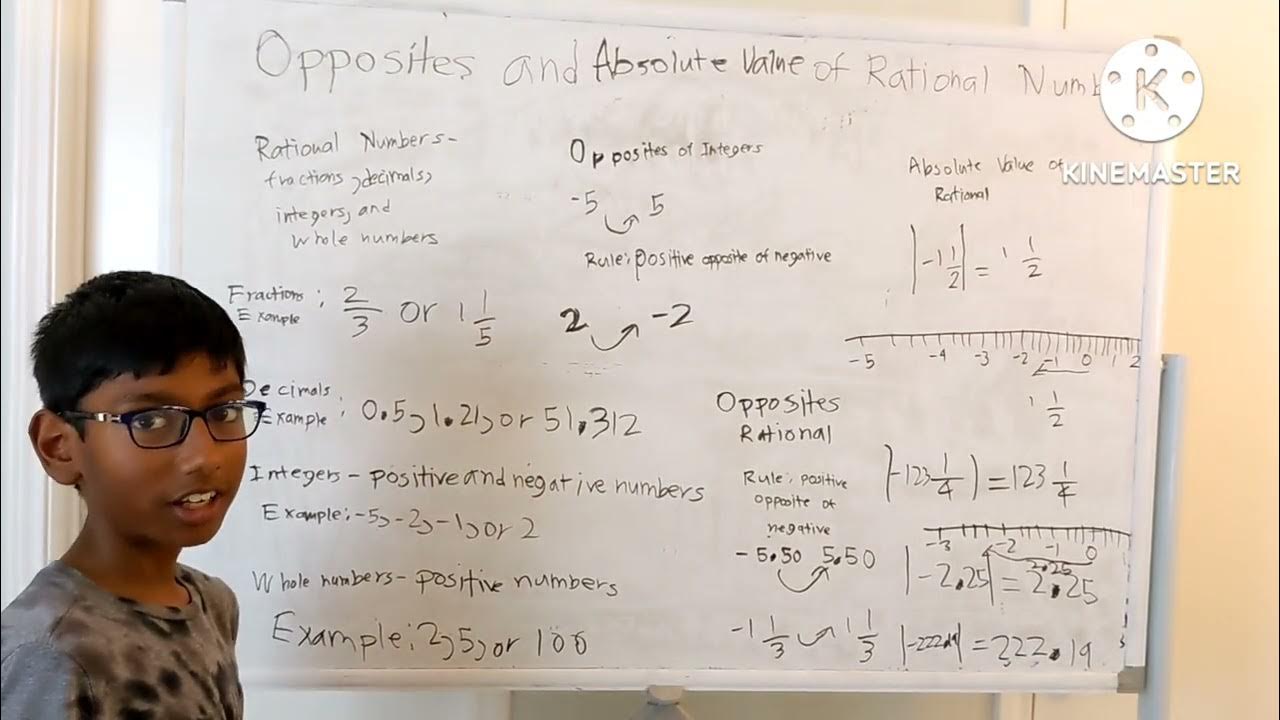 Opposites and Absolute Value of Rational Numb
K
KINEMASTER
Rational Numbers-
fractions, decimals,
integers, and
Whole numbers
Fractions:
Example
2/3 or 1 1/5
Decimals
Example: 0.5, 1.21, or 51.312
Integers - positive and negative numbers
Example: -5, -2, -1, or 2
Whole numbers - positive numbers
Example: 2, 5, or 100
Opposites of Integers
-5 5
Rule: positive opposite of negative
2 -2
Opposites
Rational
Rule: positive
opposite of
negative
-5.50 5.50
-1 1/3 1 1/3
Absolute Value of
Rational
|-1 1/2| = 1 1/2
-5 -4 -3 -2 -1 0 1 2
1 1/2
|-123 1/4| = 123 1/4
-3 -2 -1 0
2.25
|-2.25| = 2.25
|-222.19| = 222.19